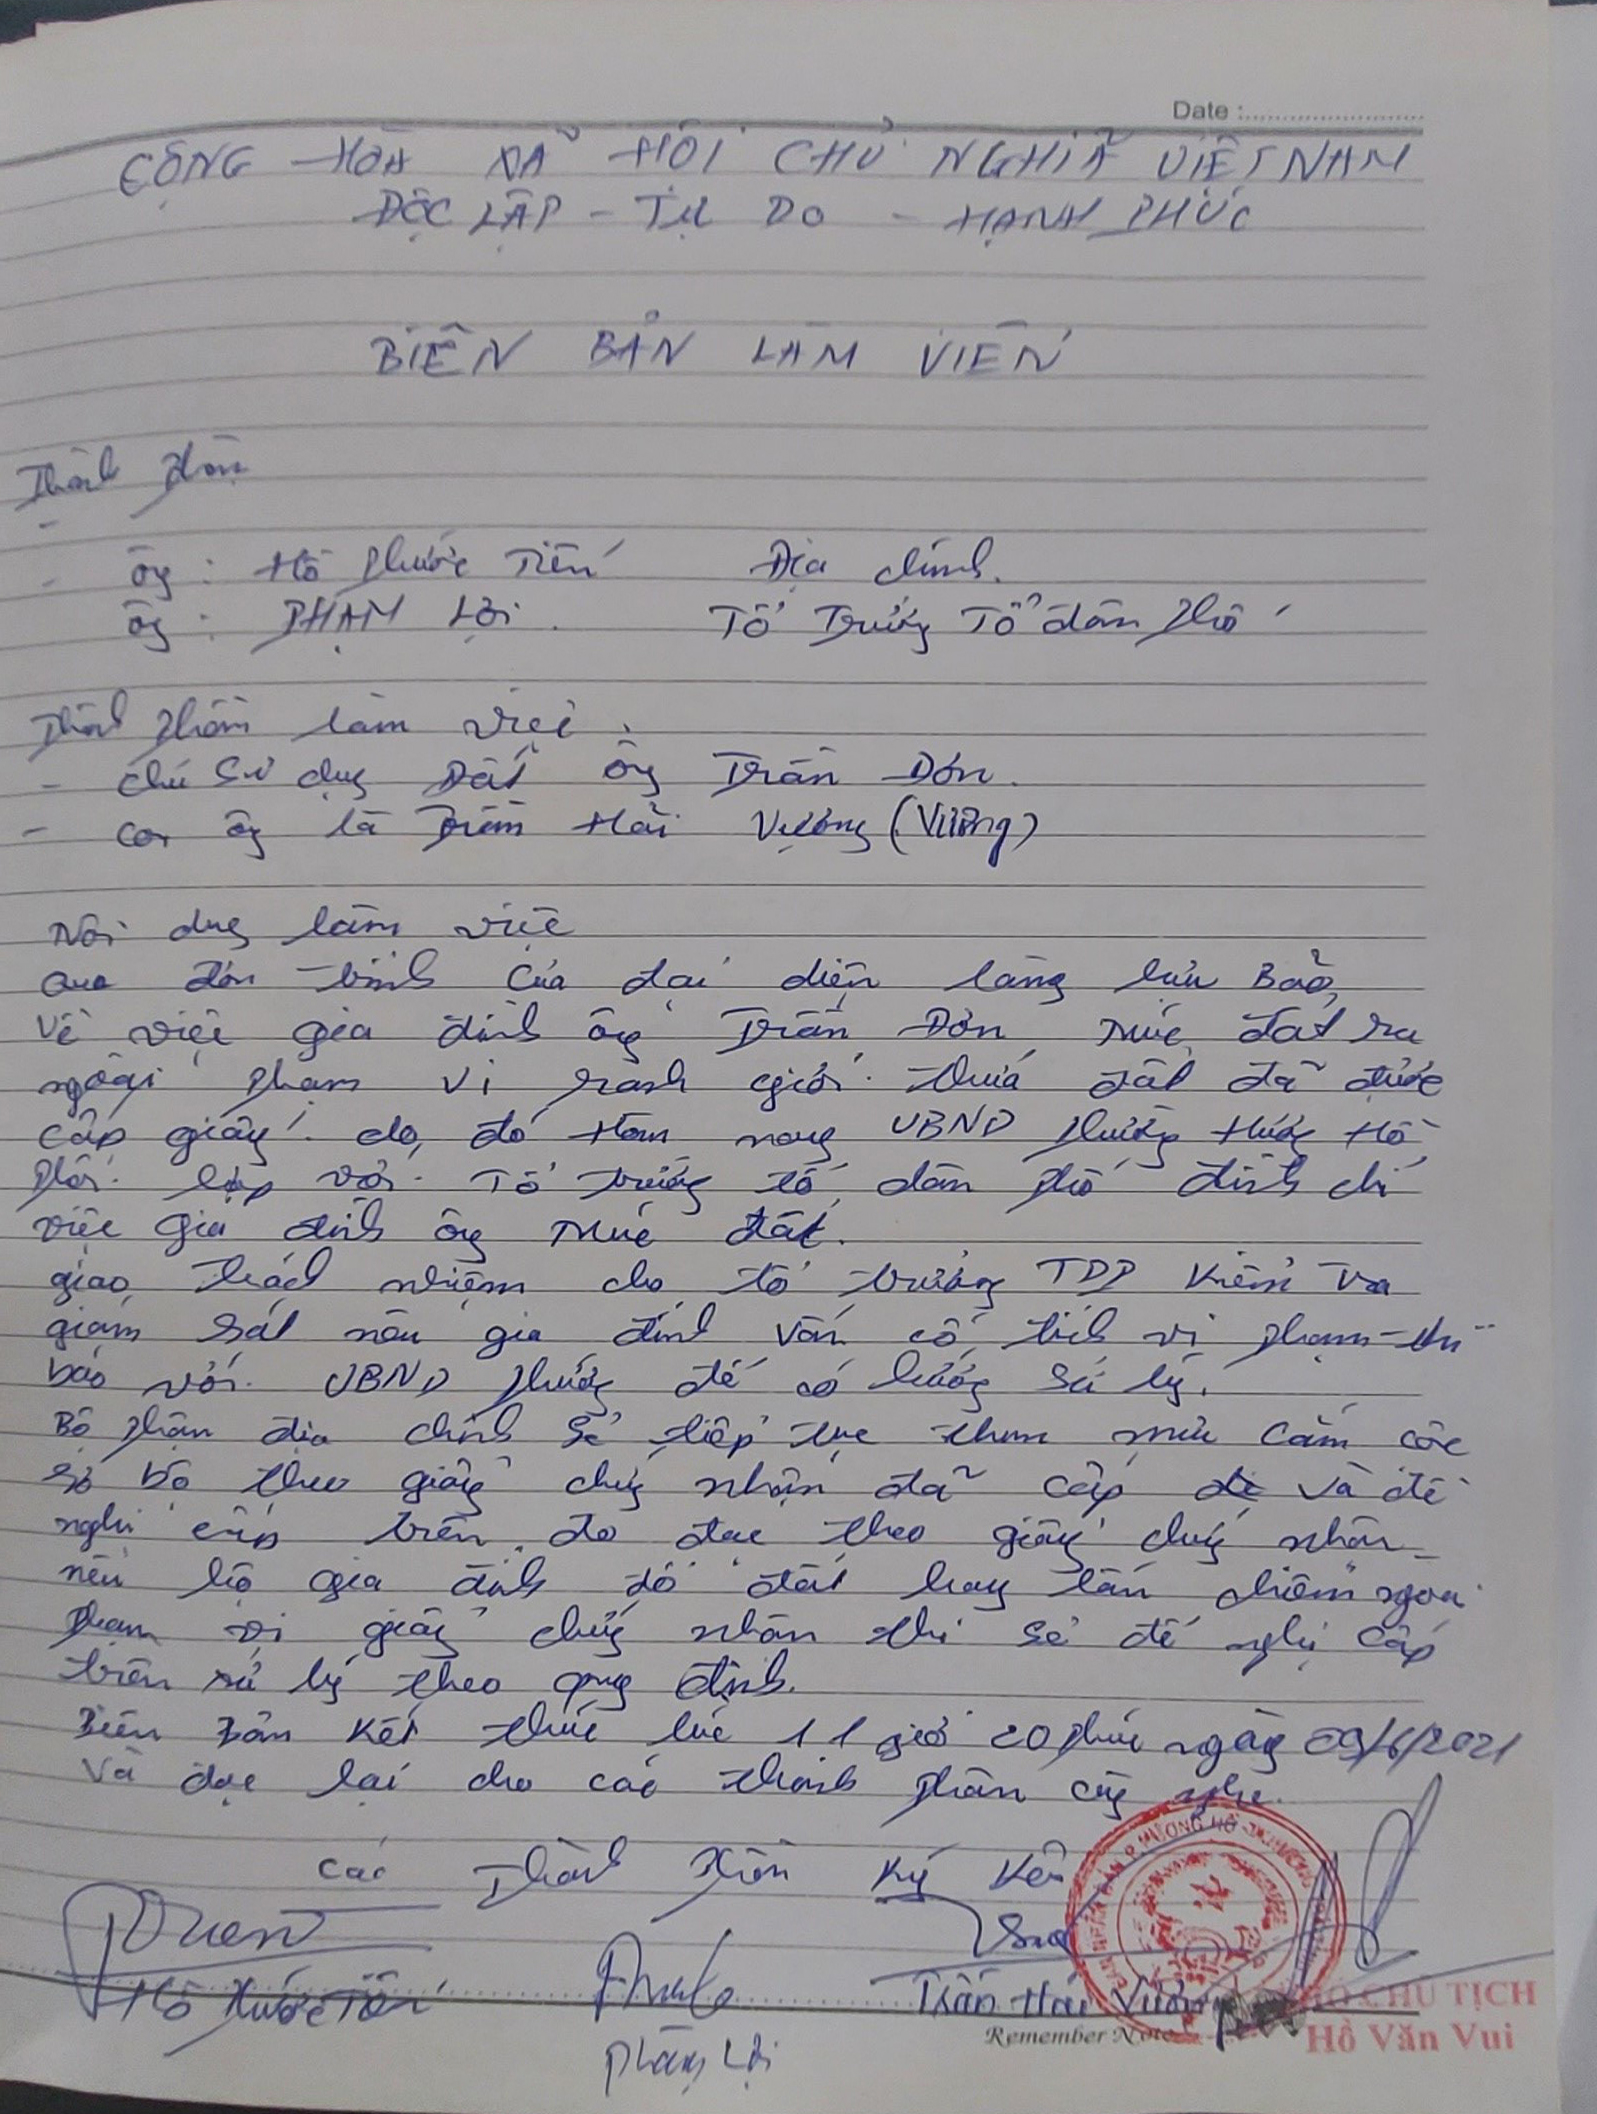 Date :
CỘNG HÒA XÃ HỘI CHỦ NGHĨA VIỆT NAM
ĐỘC LẬP - TỰ DO - HẠNH PHÚC
BIÊN BẢN LÀM VIÊN
Thành phần
- ông : Hồ Phước Tiến Địa chính.
ông : PHẠM Lợi. Tổ Trưởng Tổ dân phố
Thành phần làm việc.
- chủ sử dụng Đất ông Trần Đón.
- con ông là Trần Hải Vương (Vương)
Nội dung làm việc
Qua đơn trình của đại diện làng Lưu Bảo,
Về việc gia đình ông Trần Đón múc đất ra
ngoài phạm vi ranh giới thửa đất đã được
cấp giấy. do, đó Hôm nay UBND phường Hương Hồ
phối hợp với Tổ trưởng tổ dân phố đình chỉ
việc gia đình ông múc đất.
giao trách nhiệm cho tổ trưởng TDP kiểm tra
giám sát nếu gia đình vẫn cố tình vi phạm thì
báo với UBND phường để có hướng sử lý.
Bộ phận địa chính sẽ tiếp tục tham mưu cắm cọc
sơ bộ theo giấy chứng nhận đã cấp và đề
nghị cấp trên đo đạc theo giấy chứng nhận
nếu hộ gia đình đổ đất hay lấn chiếm ngoài
phạm vi giấy chứng nhận thì sẽ đề nghị cấp
trên xử lý theo quy định.
Biên bản kết thúc lúc 11 giờ 20 phút ngày 09/6/2021
Và đọc lại cho các thành phần cùng nghe.
Các Thành phần Ký tên
Hồ Phước Tiến
Phạm Lợi
Trần Hải Vương
Remember Note
PHÓ CHỦ TỊCH
Hồ Văn Vui